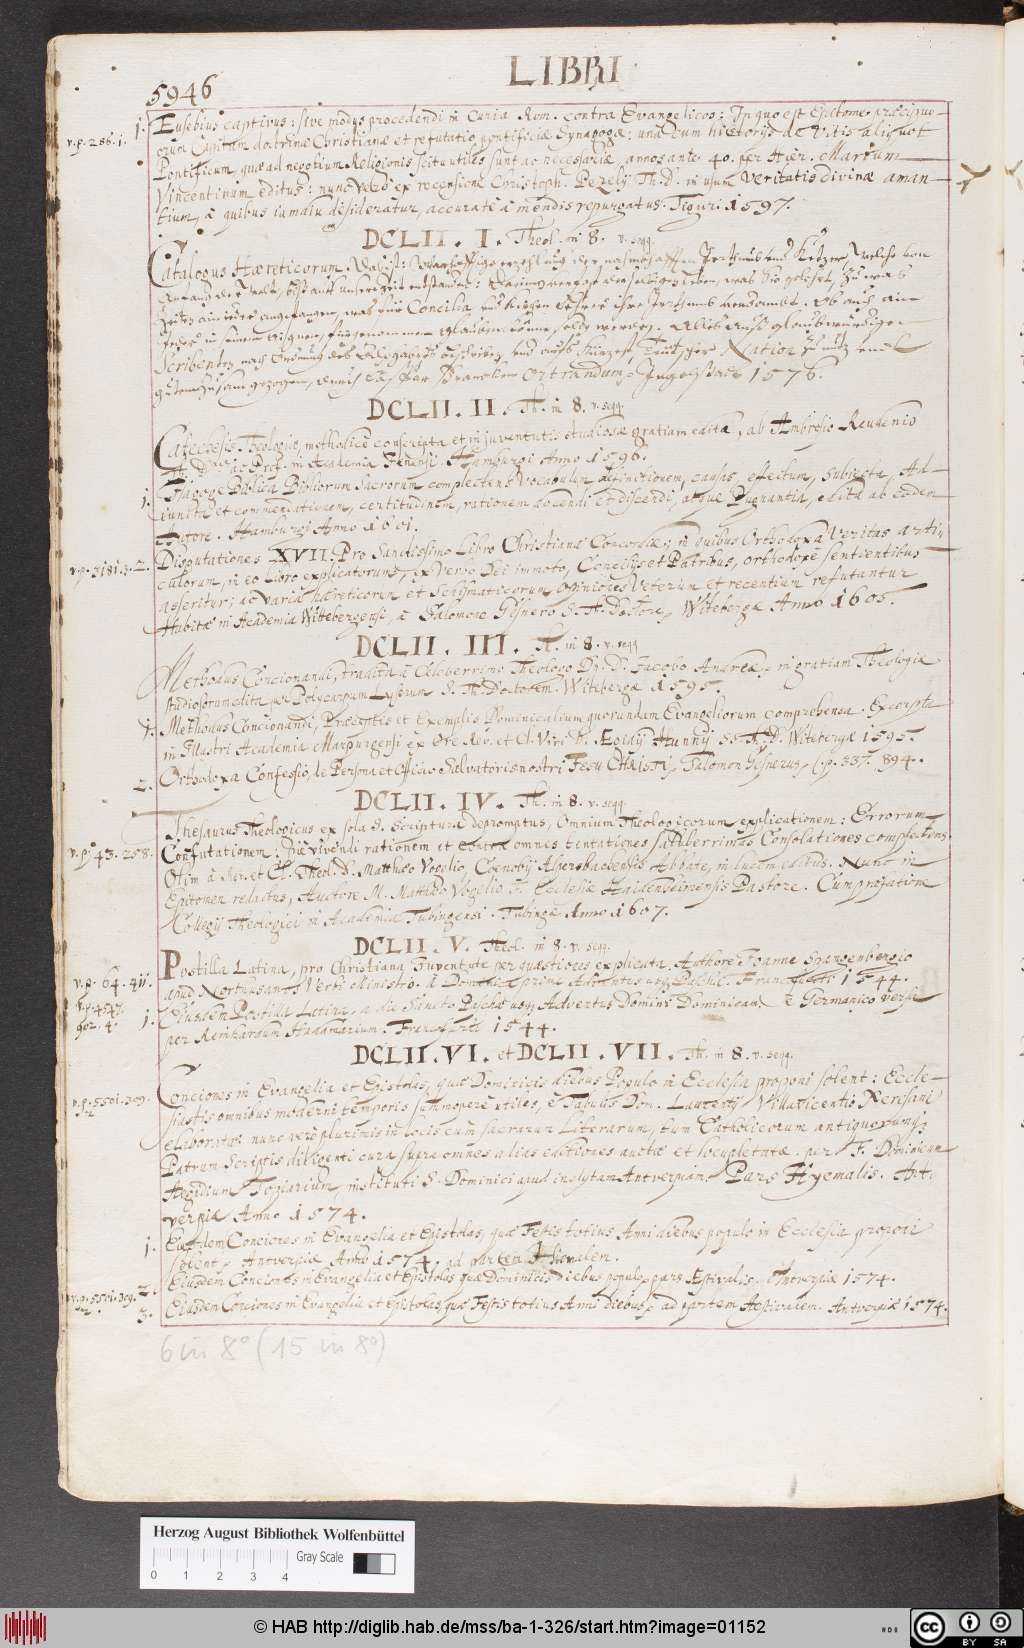 LIBRI
5946
v. p. 286. 1. 1. Eusebius captivus: sive modus procedendi in Curia Rom. contra Evangelicos: In quo est Epitome præcipuo-
rum Capitum doctrinæ Christianæ et refutatio pontificiæ Synagogæ: una cum historijs de vitis aliquot
Pontificum, quæ ad negotium Religionis scitu utiles sunt ac necessariæ, annos ante 40. per Hier. Marium
Vincentinum editus: nunc vero ex recensione Christoph. Pezelij Th. D. in usum veritatis divinæ aman-
tium, à quibus iamdiu desideratur, accuratè à mendis repurgatus. Tiguri. 1597.
DCLII. I. Theol. in 8. v. seqq.
Catalogus Hæreticorum. Das ist: Warhafftige erzehlung der nahmhafften Irrthumb und Ketzer, welche von
Anfang der Welt, biß auff unsere Zeit entstanden:
Concilia
Scribenten nach Ordnung des Alphabeths
1576.
DCLII. II. Th. in 8. v. seqq.
Catechesis Theologiæ, methodicè conscripta et in juventutis studiosæ gratiam edita, ab Ambrosio Reudenio
Th. D. ac Prof. in Academia Jenensi. Hamburgi Anno 1596.
1. Isagoge Biblica Bibliorum Sacrorum complectens Vocabulum definitionem, causas, effectum, subiecta, Ad-
iuncta et commendationem, certitudinem, rationem docendi et discendi, atque Pugnantia, edita ab eodem
Autore. Hamburgi Anno 1601.
v. p. 3181. 3. 2. Disputationes XVII. Pro Sanctissimo Libro Christianæ Concordiæ; in quibus Orthodoxa Veritas arti-
culorum, in eo Libro explicatorum, ex Verbo Dei immoto, Concilijs et Patribus, orthodoxè sententibus
asseritur; ac variæ hæreticorum et Schismaticorum opiniones Veterum et recentium refutantur
Habitæ in Academia Wittebergensi, à Salomone Gesnero S. Th. Doctore, Witebergæ Anno 1605.
DCLII. III. Th. in 8. v. seqq.
Methodus Concionandi, tradita à Celeberrimo Theologo Dn. D. Jacobo Andreæ, in gratiam Theologiæ
studiosorum edita per Polycarpum Lyserum S. Th. Doctorem. Witebergæ 1595.
1. Methodus Concionandi, Præceptis et Exemplis Dominicalium quorundam Evangeliorum comprehensa. Excerpta
in Illustri Academia Marpurgensi ex Ore Rev. et Cl. Viri D. Ægidij Hunnij SS. Th. D. Witebergæ 1595.
2. Orthodoxa Confessio, de Persona et Officio Salvatoris nostri JESU CHRISTI, Salomon Gesnerus, v. p. 337. 894.
DCLII. IV. Th. in 8. v. seqq.
v. p. 43. 258. Thesaurus Theologicus ex sola S. Scriptura depromptus, Omnium Theologicorum explicationem: Errorum
Confutationem: Piè vivendi rationem et contra omnes tentationes saluberrimas Consolationes complectens:
Olim à Rev. et Cl. Theol. D. Matthæo Vogelio, Coenobij Alpersbacensis Abbate, in lucem editus. Nunc in
Epitomen redactus, Auctore M. Matthæo Vogelio F. Ecclesiæ Haidenheimensis Pastore. Cum probatione
Collegij Theologici in Academia Tubingensi. Tubingæ Anno 1607.
DCLII. V. Theol. in 8. v. seqq.
v. p. 64. 411. Postilla Latina, pro Christiana Iuventute per quæstiones explicata. Authore Joanne Spangenbergio
apud Northusanos Verbi Ministro. à Dominica prima Adventus usque Paschæ. Francofurti 1544.
v. p. 4547. 902. 4. 1. Eiusdem Postilla Latina, a die Sancto Paschæ usque Adventus Domini Dominicam. è Germanico versa
per Reinhardum Hadamarium. Francofurti 1544.
DCLII. VI. et DCLII. VII. Th. in 8. v. seqq.
v. p. 5501. 309. 2. Conciones in Evangelia et Epistolas, quæ Dominicis diebus Populo in Ecclesia proponi solent: Eccle-
siastis omnibus moderni temporis summopere utiles, è Tabulis Dom. Laurentij Villavicentio Xeresani
elaboratæ: nunc verò plurimis in locis cum sacrarum Literarum, tum Catholicorum antiquorumque
Patrum Scriptis diligenti cura supra omnes alias editiones auctæ et locupletatæ. per F. Dominicum
Aegidium Topiarium, instituti S. Dominici apud inclytam Antverpiam. Pars Hyemalis. Ant-
verpiæ Anno 1574.
1. Eiusdem Conciones in Evangelia et Epistolas, quæ Festis totius Anni diebus populo in Ecclesia proponi
solent. Antverpiæ Anno 1574. ad partem Hiemalem.
v. p. 5501. 309. 2. 2. Eiusdem Conciones in Evangelia et Epistolas quæ Dominicis Diebus populo, pars Æstivalis. Antverpiæ 1574.
3. Eiusdem Conciones in Evangelia et Epistolas, quæ Festis totius Anni diebus, ad partem Aestivalem. Antverpiæ 1574.
6 in 8° (15 in 8°)
Herzog August Bibliothek Wolfenbüttel
Gray Scale
0 1 2 3 4
© HAB http://diglib.hab.de/mss/ba-1-326/start.htm?image=01152
cc BY SA